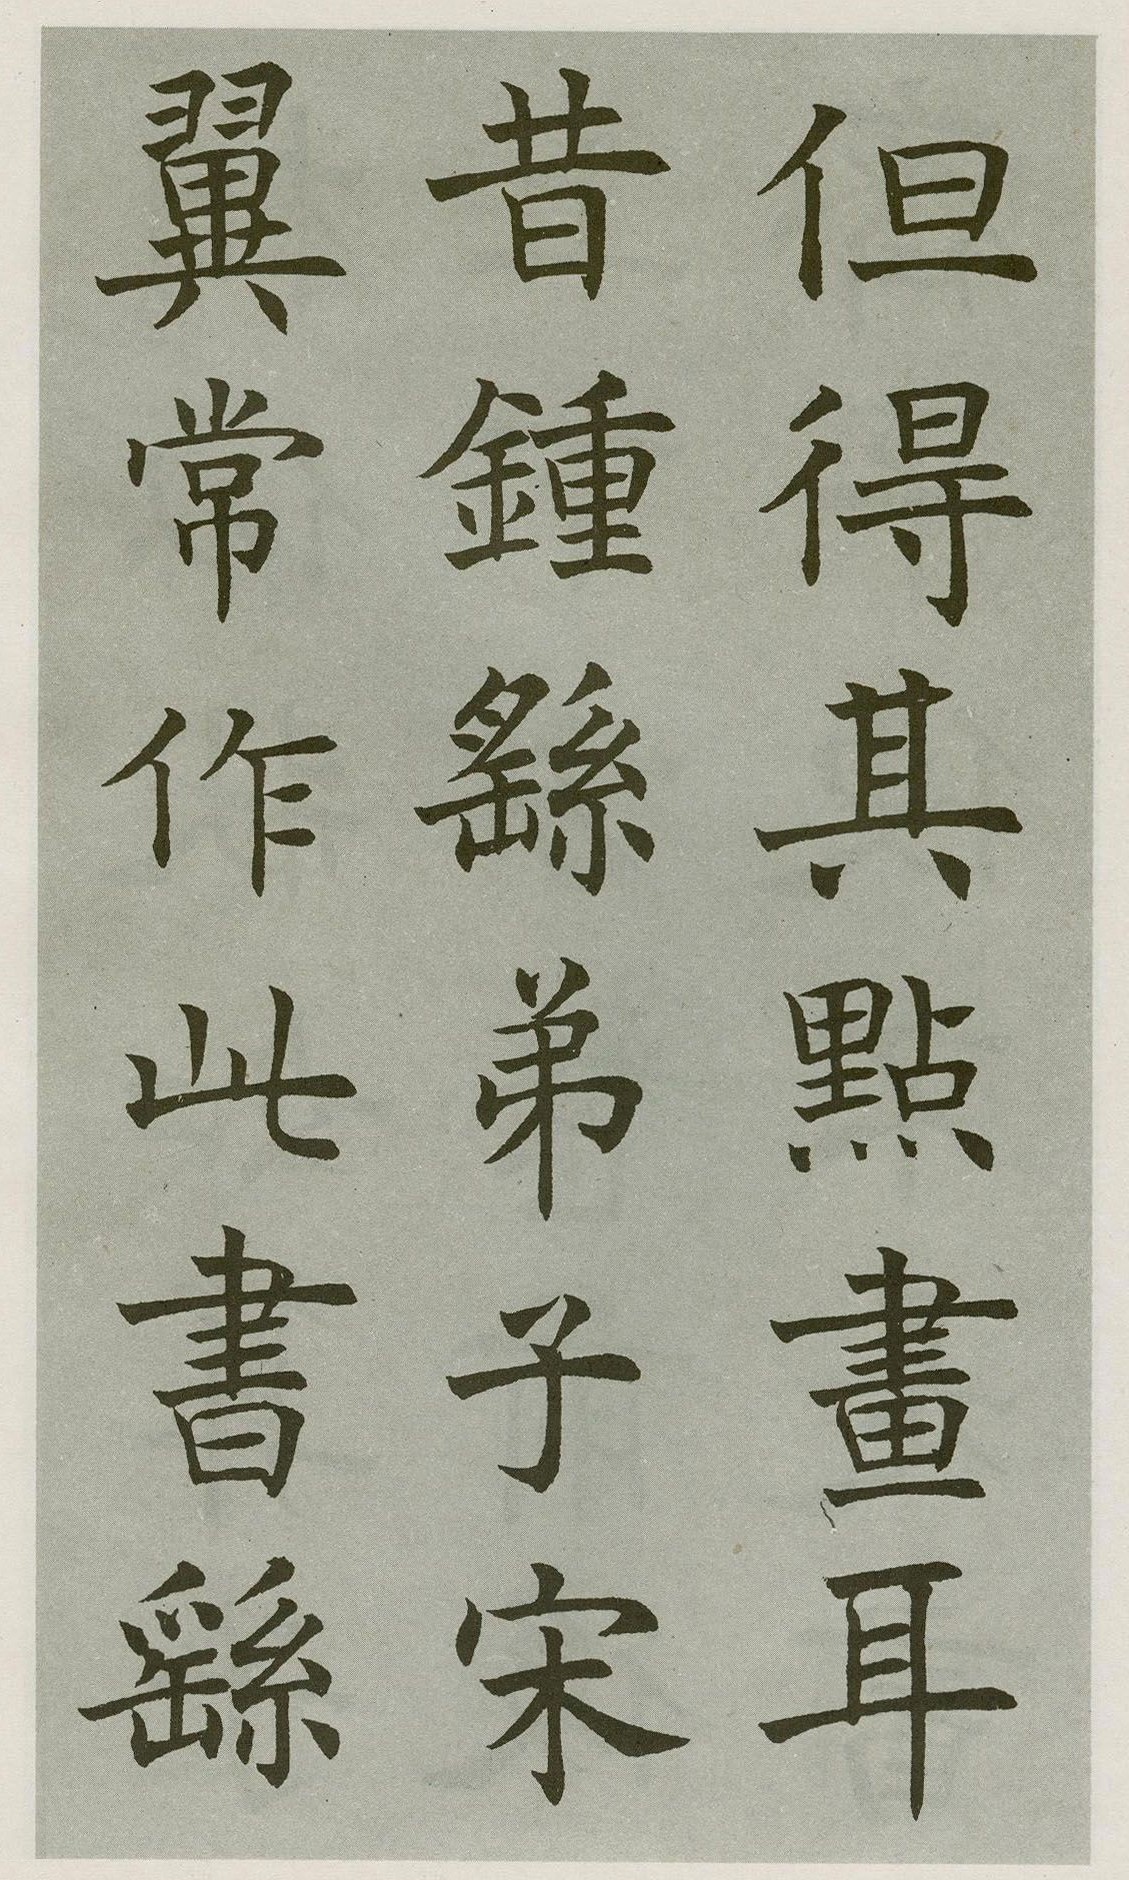 但得其點畫耳
昔鍾繇弟子宋
翼常作此書繇